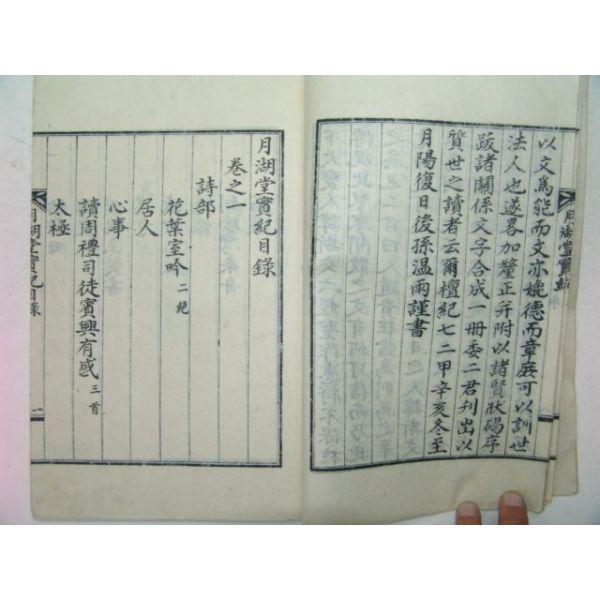 以文爲能而文亦媲德而章庶可以訓世
法人也遂畧加釐正并附以諸賢狀碣序
跋諸關係文字合成一冊委二君刋出以
質世之讀者云爾檀紀七二甲辛亥冬至
月陽復日後孫温雨謹書
月湖堂實紀
月湖堂實紀目錄
卷之一
詩部
花葉室吟 二絶
居人
心事
讀周禮司徒賓興有感 三首
太極
月湖堂實紀目錄
一